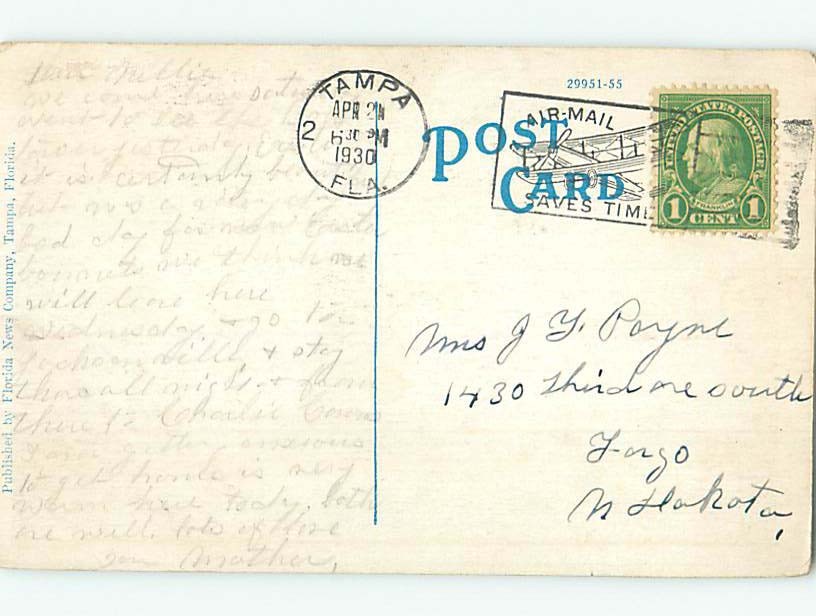 Published by Florida News Company, Tampa, Florida.
29951-55
POST
CARD
TAMPA
APR 21
2
6 30 PM
1930
FLA.
AIR-MAIL
SAVES TIME
UNITED STATES POSTAGE
FRANKLIN
1 CENT 1
Dear
we come here
went to see the
yesterday
it is certainly
but
bad day for
bonnets we think we
will leave here
wednesday & go to
Jacksonville & stay
there all night & from
there to Charlie
I am getting anxious
to get home is very
warm here today. both
are well. lots of love
your Mother,
Mrs J. F. Payne
1430 Third ave south
Fargo
N Dakota,